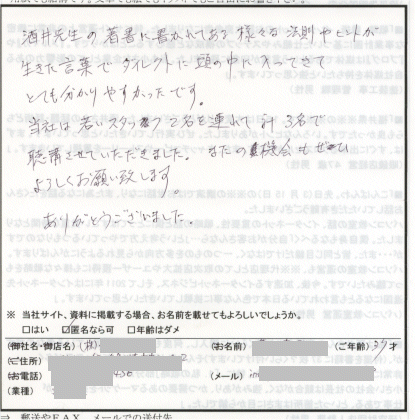 酒井先生の著書に書かれてある様々な法則やヒントが
生きた言葉でダイレクトに頭の中に入ってきて
とても分かりやすかったです。
当社は若いスタッフ2名を連れて計3名で
聴講させていただきました。またの機会もぜひ
よろしくお願い致します。
ありがとうございました。
※ 当社サイト、資料に掲載する場合、お名前を載せてもよろしいでしょうか。
□はい ☑匿名なら可 □年齢はダメ
(御社名・御店名) (株) (お名前) (ご年齢) 37才
(ご住所)
(お電話) (メール)
(業種)
⇒ 郵送やFAX、メールでの送付先